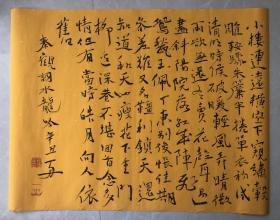 小樓連遠橫空下窺繡轂
雕鞍驟朱簾半捲單衣初試
清明時候破暖輕風弄晴微
雨欲無還有賣花聲過盡
斜陽院落紅成陣飛
鴛甃玉佩丁東別後悵佳期
參差難又名韁利鎖天還
知道和天也瘦花下重門
柳邊深巷不堪回首念多
情但有當時皓月向人依
舊
秦觀詞水龍吟辛丑